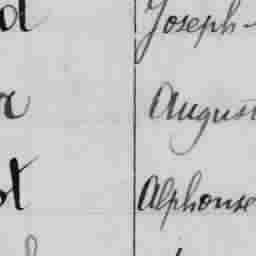 d Joseph-
r August
st Alphonse